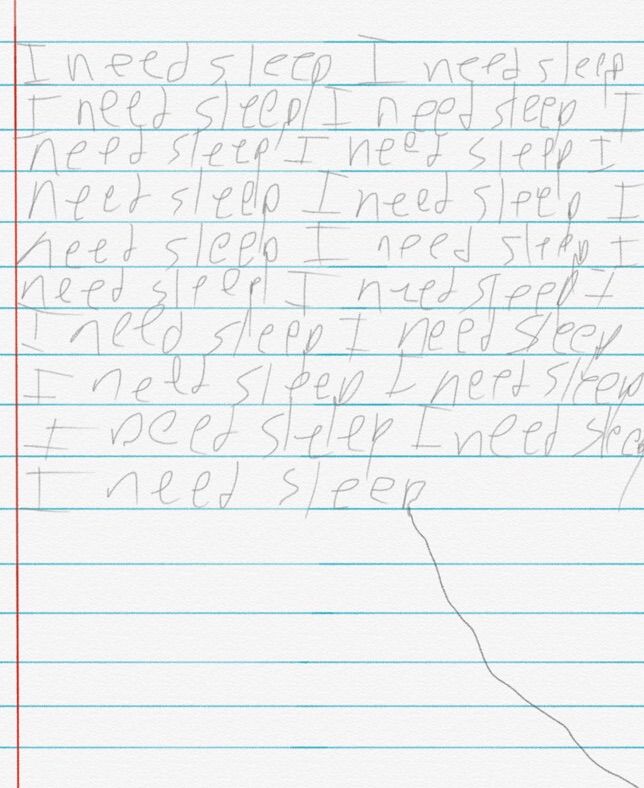 I need sleep I need sleep
I need sleep I need sleep I
need sleep I need sleep I
need sleep I need sleep I
need sleep I need sleep I
need sleep I need sleep I
I need sleep I need sleep
I need sleep I need sleep
I need sleep I need sleep
I need sleep